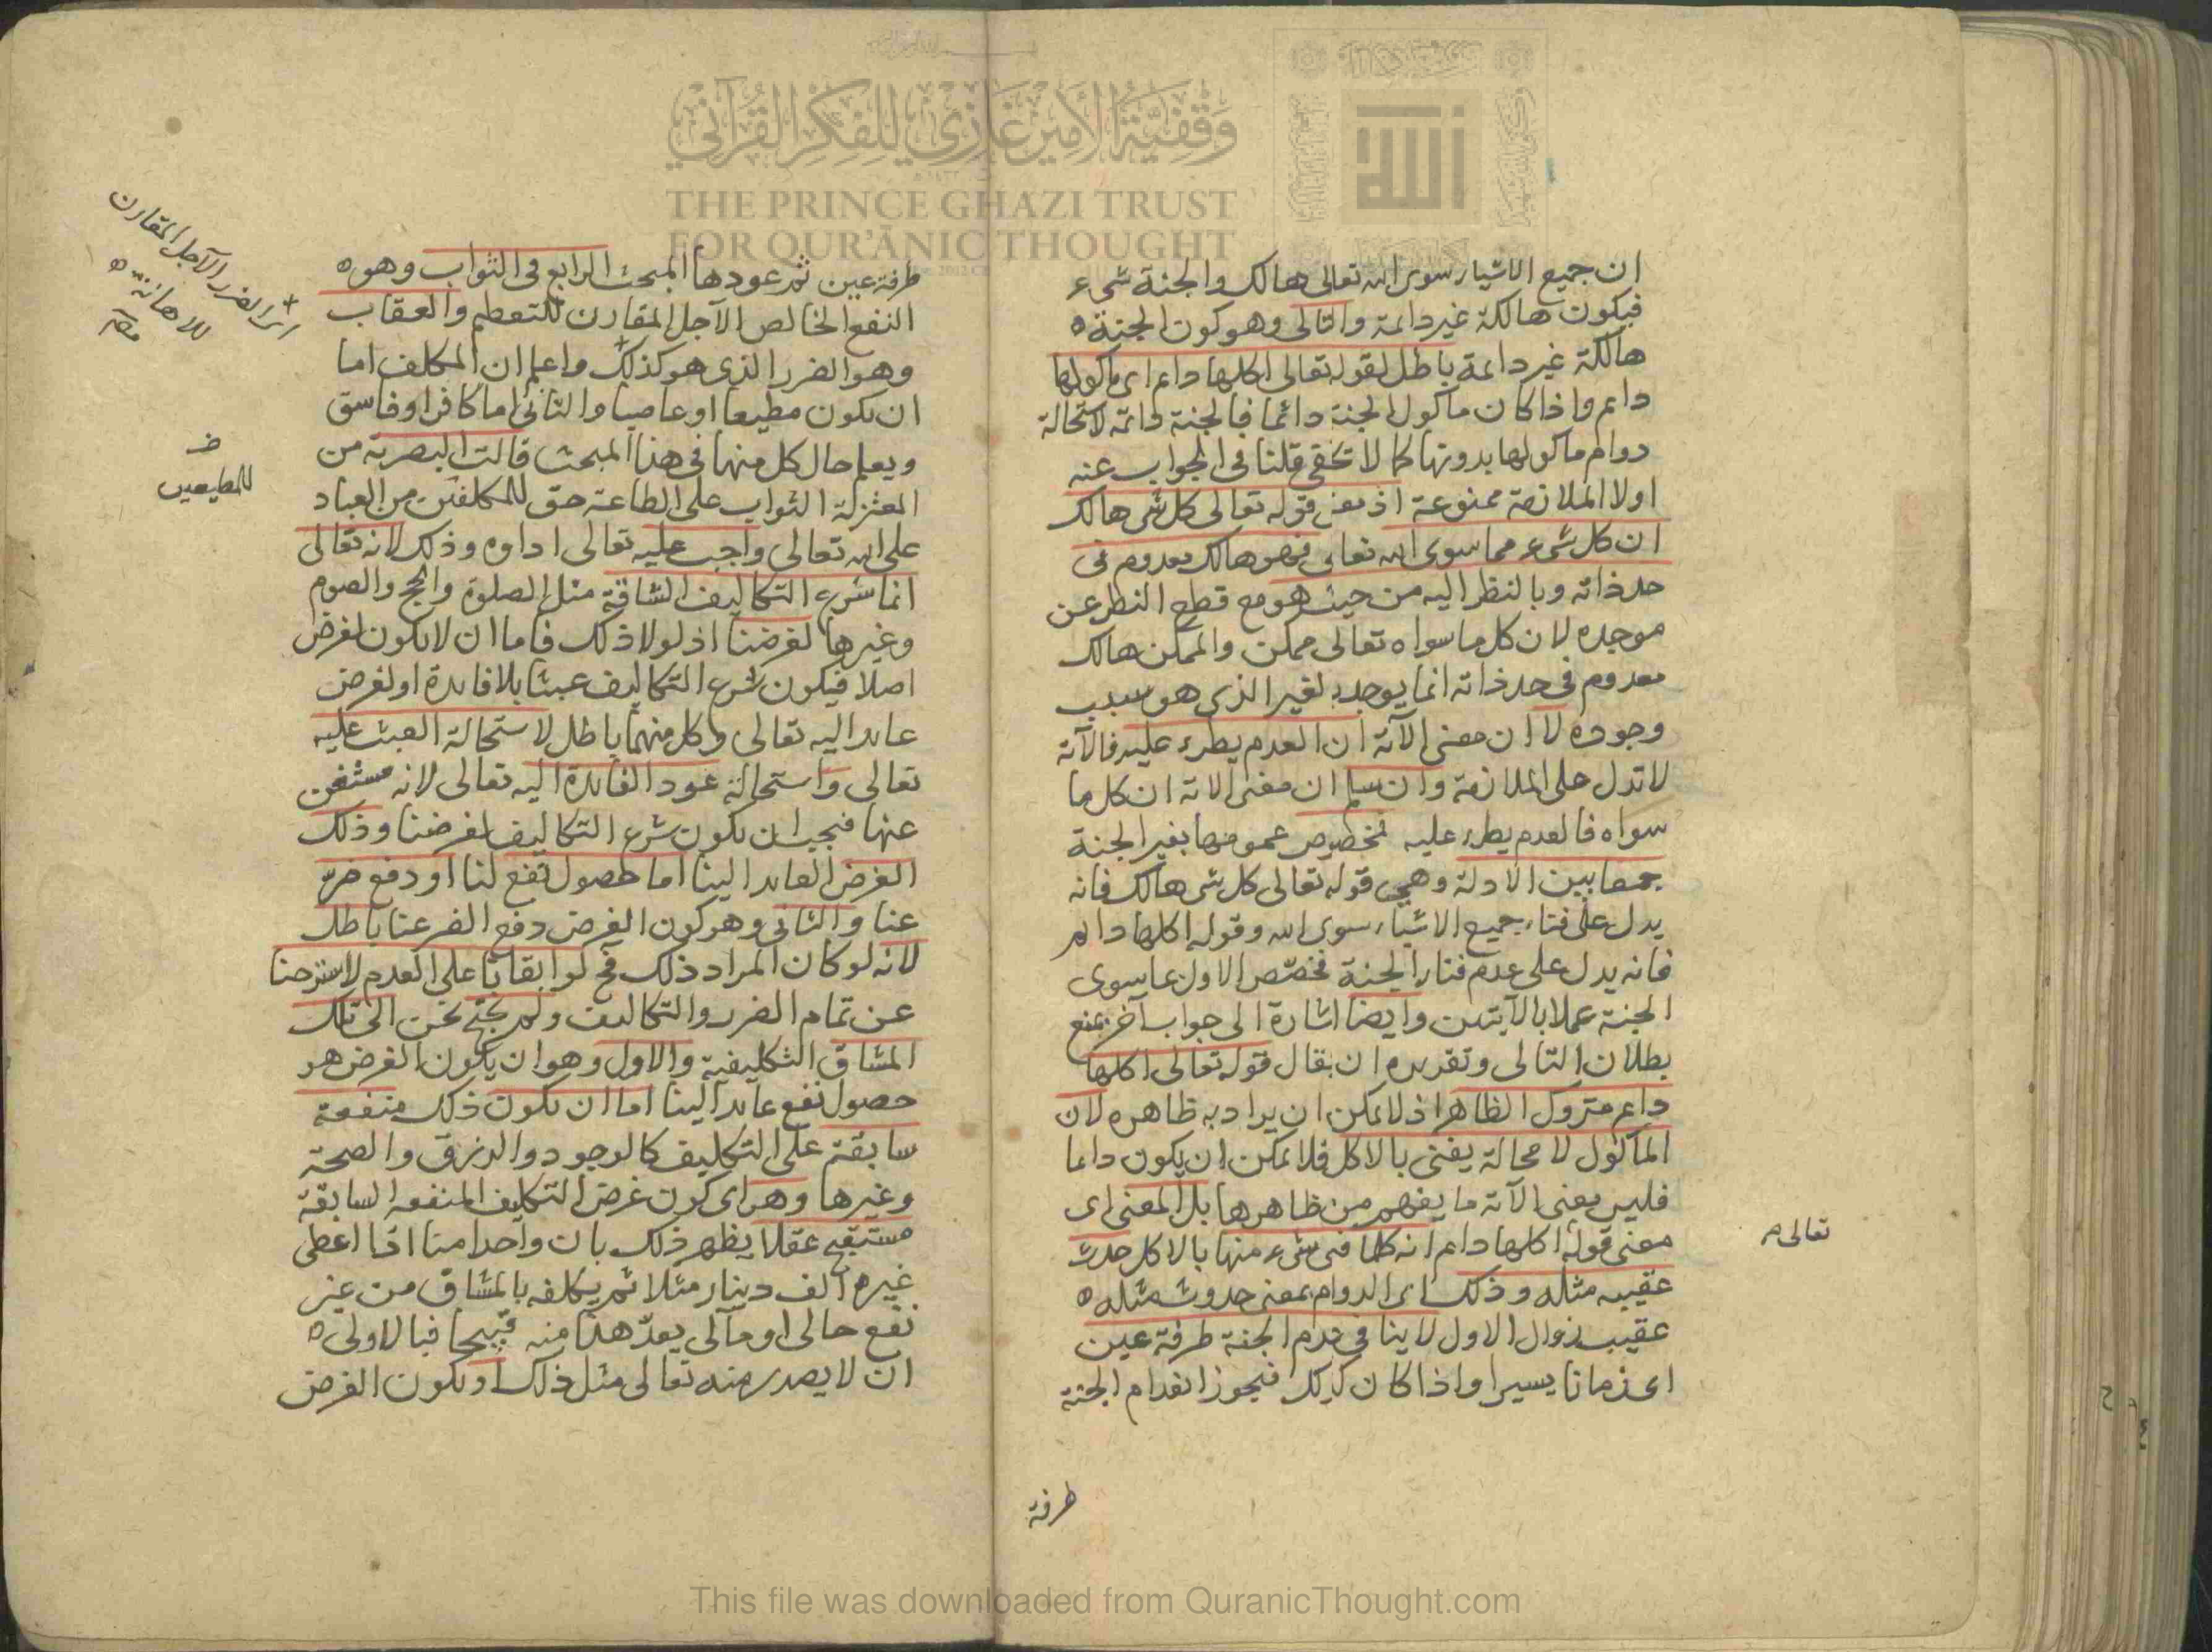 ان جميع الاشياء سوى الله تعالى هالك والجنة شىء
فيكون هالكة غير دائمة والتالى وهو كون الجنة
هالكة غير دائمة باطل لقوله تعالى اكلها دايم اى ماكولها
دايم واذا كان ماكول الجنة دائما فالجنة دائمة لاستحالة
دوام ماكولها بدونها كما لا تخفى قلنا فى الجواب عنه
اولا الملازمة ممنوعة اذ معنى قوله تعالى كل شى هالك
ان كل شىء مما سوى الله تعالى فهو هالك معدوم فى
حد ذاته وبالنظر اليه من حيث هو مع قطع النظر عن
موجده لان كل ما سواه تعالى ممكن والممكن هالك
معدوم فى حد ذاته انما يوجد لغير الذى هو سبب
وجوده لا ان معنى الآية ان العدم يطرء عليه فالآية
لا تدل على الملازمة وان سلم ان معنى الاية ان كل ما
سواه فالعدم يطرء عليه فخصوص عمومها بغير الجنة
جمعا بين الادلة وهى قوله تعالى كل شى هالك فانه
يدل على فناء جميع الاشياء سوى الله وقوله اكلها دايم
فانه يدل على عدم فناء الجنة فخصّص الاول بما سوى
الجنة عملا بالآيتين وايضا اشارة الى جواب آخر بمنع
بطلان التالى وتقريره ان يقال قوله تعالى اكلها
دايم متروك الظاهر اذ لا يمكن ان يراد به ظاهره لان
الماكول لا محالة يفنى بالاكل فلا يمكن ان يكون دايما
فليس معنى الآية ما يفهم من ظاهرها بل المعنى اى
معنى قوله اكلها دايم انه كلما فنى شىء منها بالاكل حدث
تعالى م
عقيبه مثله وذلك اى الدوام بمعنى حدوث مثله
عقيب زوال الاول لا ينافى عدم الجنة طرفة عين
اى زمانا يسيرا واذا كان كذلك فيجوز انعدام الجنة
طرفة
طرفة عين ثم عودها المبحث الرابع فى الثواب وهو
النفع الخالص الآجل المقارن للتعظيم والعقاب
وهو الضرر الذى هو كذلك واعلم ان المكلف اما
اى الضرر الآجل المقارن
للاهانة
ان يكون مطيعا او عاصيا والثانى اما كافر او فاسق
ويعلم حال كل منها فى هذا المبحث قالت البصرية من
المعتزلة الثواب على الطاعة حق للمكلفين من العباد
للمطيعين
على الله تعالى واجب عليه تعالى اداوه وذلك لانه تعالى
انما شرع التكاليف الشاقة مثل الصلوة والحج والصوم
وغيرها لغرضنا اذ لولا ذلك فاما ان لا يكون لغرض
اصلا فيكون شرع التكاليف عبثا بلا فايدة او لغرض
عايد اليه تعالى وكل منهما باطل لاستحالة العبث عليه
تعالى واستحالة عود الفايدة اليه تعالى لانه مستغن
عنها فيجب ان يكون شرع التكاليف لغرضنا وذلك
الغرض العايد الينا اما حصول نفع لنا او دفع ضرّ
عنا والثانى وهو كون الغرض دفع الضر عنا باطل
لانه لو كان المراد ذلك فح لو ابقانا على العدم لاسترحنا
عن تمام الضرر والتكاليف ولم نحتج نحن الى تلك
المشاق التكليفية والاول وهو ان يكون الغرض هو
حصول نفع عايد الينا اما ان يكون ذلك منفعة
سابقة على التكليف كالوجود والرزق والصحة
وغيرها وهو اى كون غرض التكليف المنفعة السابقة
مستقبح عقلا يظهر ذلك بان واحدا منا اذا اعطى
غيره الف دينار مثلا ثم يكلفه بالمشاق من غير
نفع حالى او مآلى يعدّ هذا منه قبيحا فبالاولى
ان لا يصدر منه تعالى مثل ذلك او يكون الغرض
وقفية الأمير غازي للفكر القرآني
THE PRINCE GHAZI TRUST
FOR QUR'ĀNIC THOUGHT
الله
This file was downloaded from QuranicThought.com